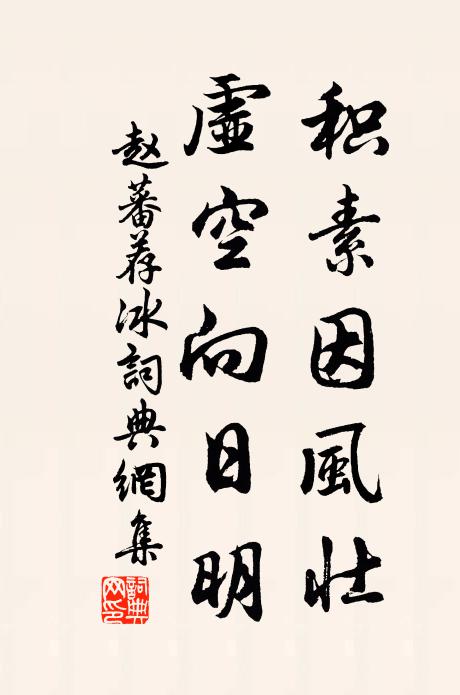 积素因風壮
虚空向日明
赵蕃荐冰詞典網集
詞典網印